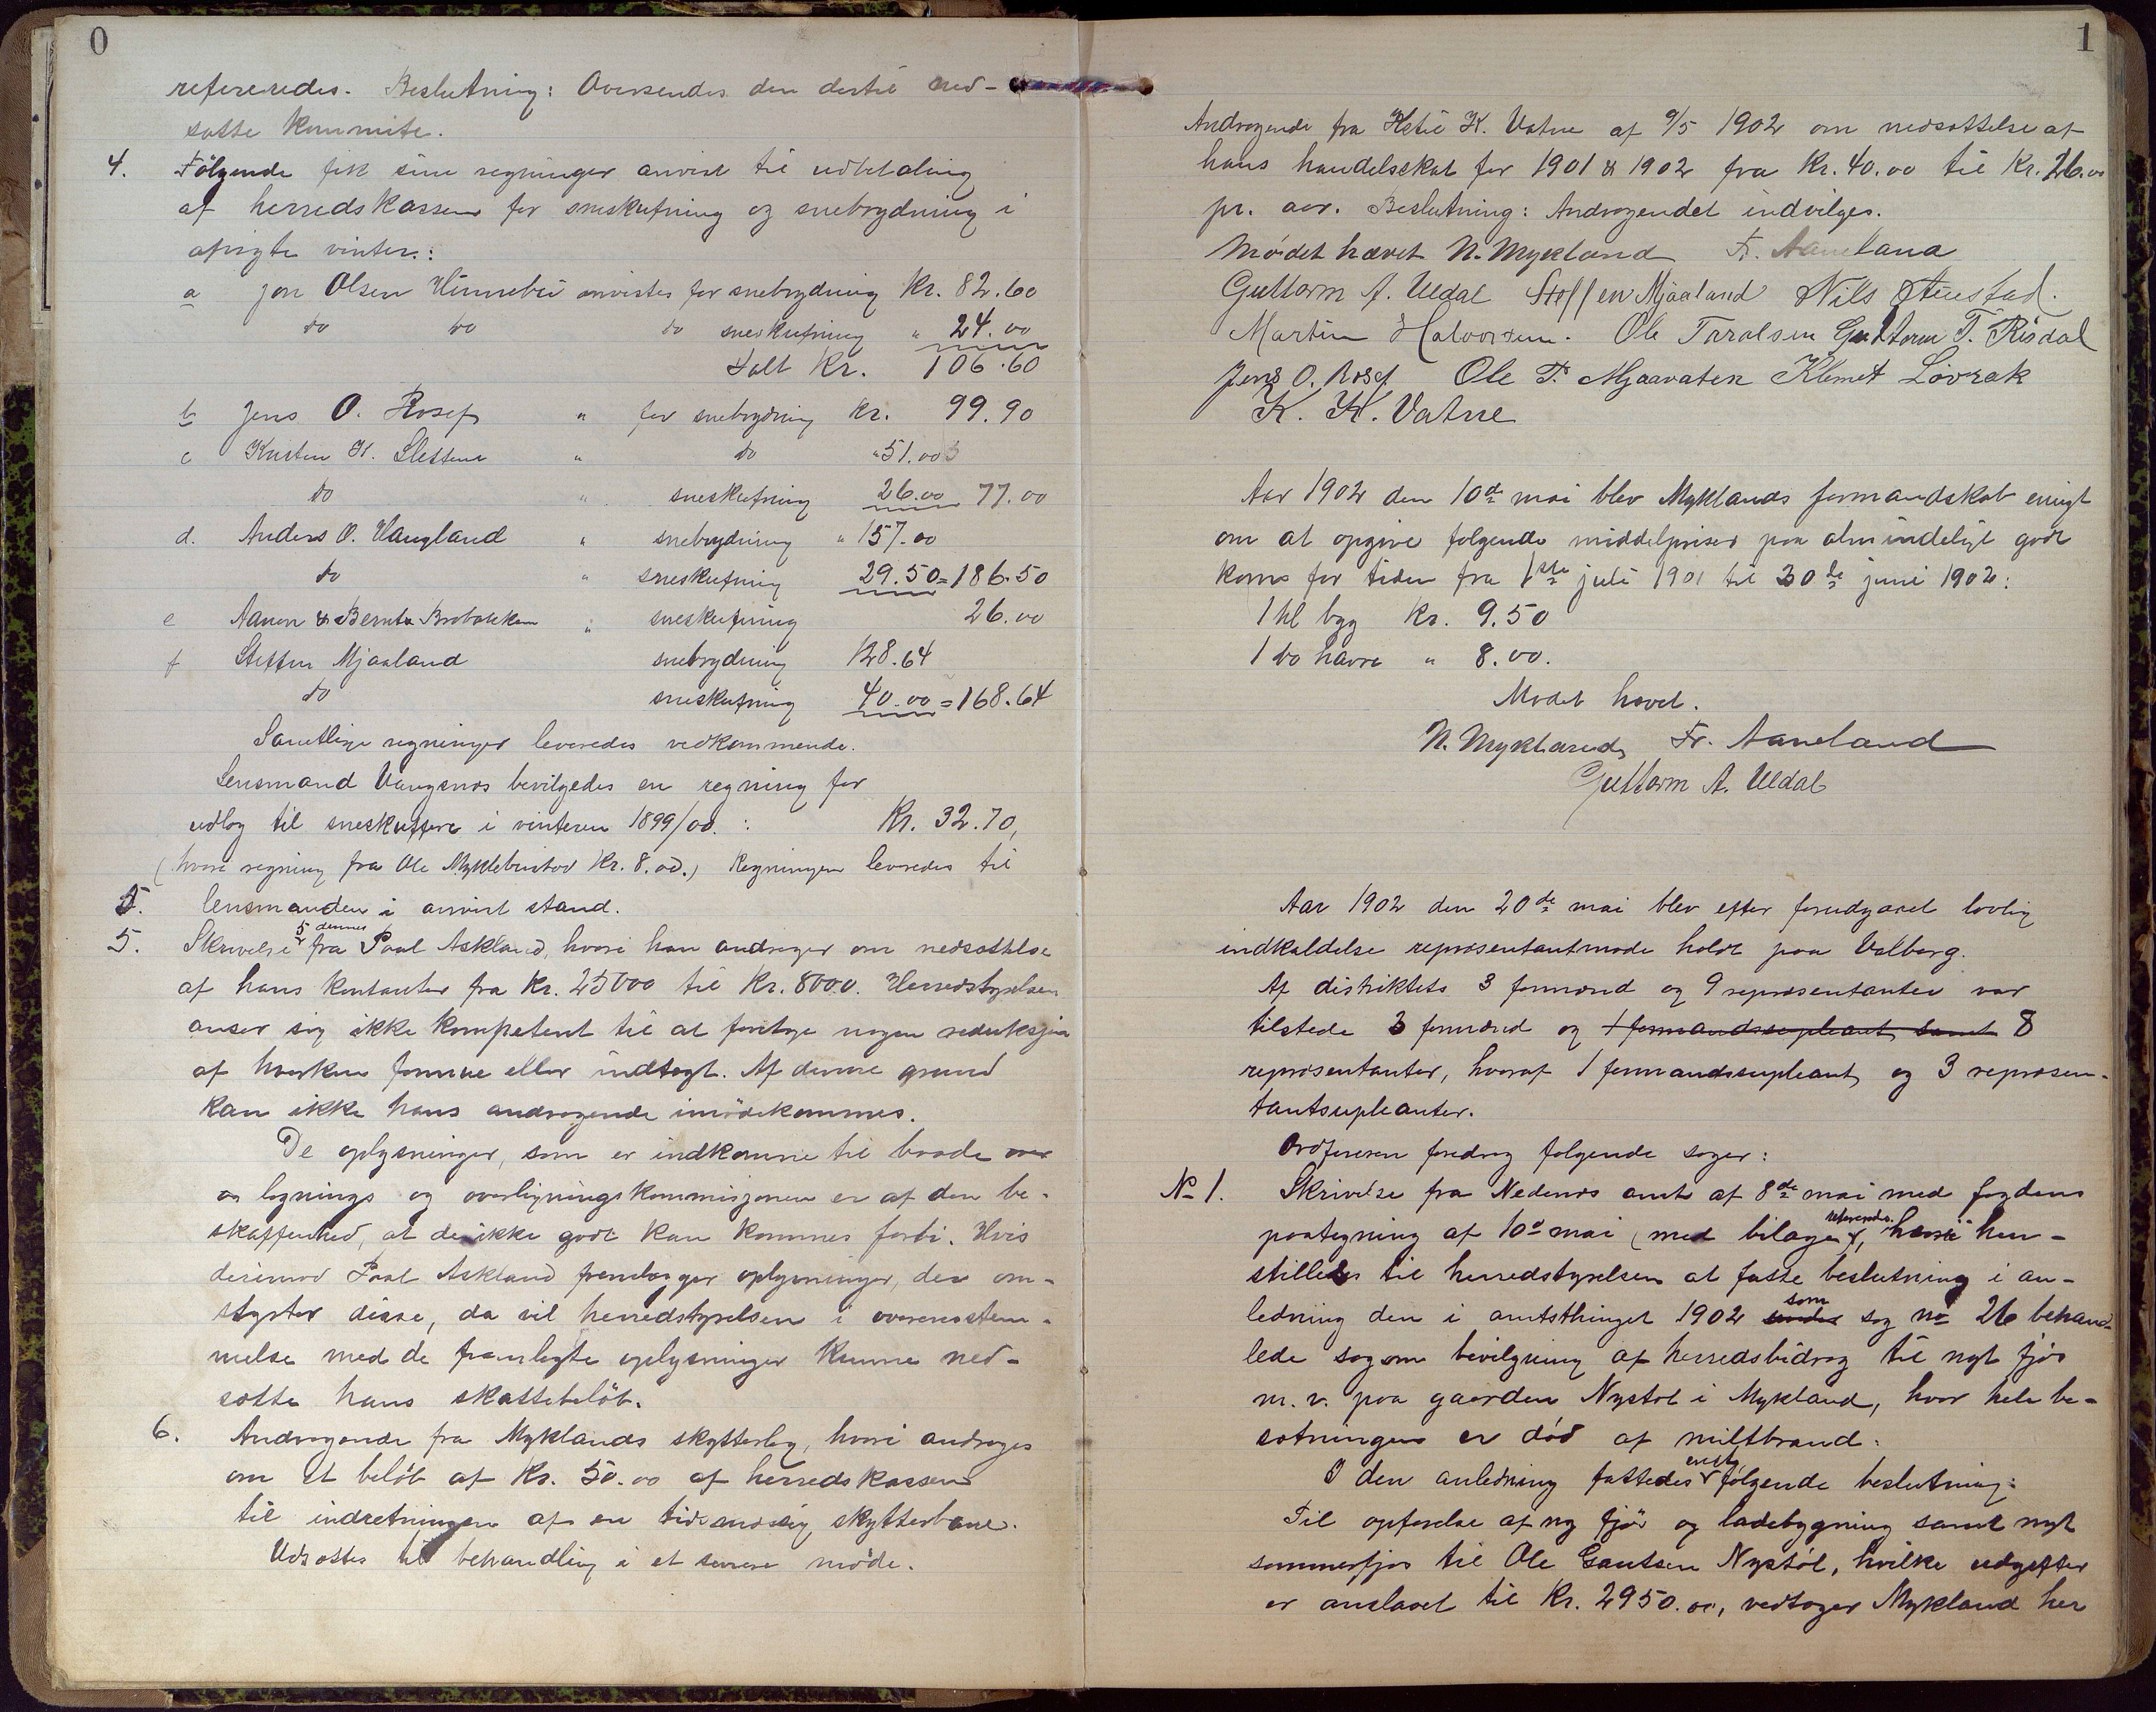 0
refereredes. Beslutning: Oversendes den dertil ned-
satte kommite.
4. Følgende fik sine regninger anvist til udbetaling
af herredskassen for sneskufning og snebrydning i
afvigte vinter:
a Jon Olsen Hinnebu anvistes for snebrydning Kr. 82.60
do do do sneskufning " 24.00
Ialt Kr. 106.60
b Jens O. Rosef " for snebrydning Kr. 99.90
c Kristen K. Slettene " do " 51.00
do " sneskufning 26.00 77.00
d. Anders O. Haugland " snebrydning " 157.00
do " sneskufning 29.50 = 186.50
e Aanon & Bernt Brobakken " sneskufning 26.00
f Steffen Mjaaland snebrydning 128.64
do sneskufning 40.00 = 168.64
Samtlige regninger leveredes vedkommende.
Lensmand Vangsnes bevilgedes en regning for
udlæg til sneskuffere i vinteren 1899/00. : Kr. 32.70,
(hvori regning fra Ole Myklebustad Kr. 8.00.) Regningen leveredes til
lensmanden i anvist stand.
5. Skrivelse fra Paal Askland, hvori han andrager om nedsættelse
af hans kontanter fra Kr. 25000 til Kr. 8000. Herredstyrelsen
anser sig ikke kompetent til at foretage nogen reduksjon
af hverken formue eller indtægt. Af denne grund
kan ikke hans andragende imødekommes.
De oplysninger, som er indkomne til baade
lignings og overligningskommisjonen er af den be-
skaffenhed, at de ikke godt kan kommes forbi. Hvis
derimod Paal Askland fremlægger oplysninger, der om-
styrter disse, da vil herredstyrelsen i overensstem-
melse med de fremlagte oplysninger kunne ned-
sætte hans skattebeløb.
6. Andragende fra Myklands skytterlag, hvori andrages
om et beløb af Kr. 50.00 af herredskassen
til indretningen af en tidsmæssig skytterbane.
Udsattes til behandling i et senere møde.
1
Andragende fra Ketil K. Vatne af 9/5 1902 om nedsættelse af
hans handelsskat for 1901 & 1902 fra Kr. 40.00 til Kr. 26.00
pr. aar. Beslutning: Andragendet indvilges.
Mødet hævet N. Mykland Fr. Aaneland
Guttorm A. Uldal Steffen Mjaaland Nils Austad.
Martin Halvorsen. Ole Taralsen Guttorm T. Risdal
Jens O. Rosef Ole T. Mjaavaten Klemet Løvrak
K. K. Vatne
Aar 1902 den 10de mai blev Myklands formandskab enigt
om at opgive følgende middelpriser paa almindeligt godt
korn for tiden fra 1ste juli 1901 til 30de juni 1902:
1 hl byg Kr. 9.50
1 do havre " 8.00.
Mødet hævet.
N. Mykland Fr. Aaneland
Guttorm A. Uldal
Aar 1902 den 20de mai blev efter forudgaaet lovlig
indkaldelse repræsentantmøde holdt paa Valberg.
Af distriktets 3 formænd og 9 repræsentanter var
tilstede 3 formænd og 1 formandssupleant samt 8
repræsentanter, hvoraf 1 formandssupleant og 3 repræsen-
tantsupleanter.
Ordføreren foredrog følgende sager:
No 1. Skrivelse fra Nedenæs amt af 8de mai med fogdens
paategning af 10d mai (med bilage), refereredes. hvori hen-
stilles til herredstyrelsen at fatte beslutning i an-
ledning den i amtsthinget 1902 som sag no 26 behand-
lede sag om bevilgning af herredsbidrag til nyt fjøs
m. v. paa gaarden Nystøl i Mykland, hvor hele be-
sætningen er død af miltbrand.
I den anledning fattedes enst. følgende beslutning:
Til opførelse af ny fjøs og ladebygning samt nyt
sommerfjøs til Ole Gautsen Nystøl, hvilke udgifter
er anslaaet til Kr. 2950.00, vedtager Mykland her